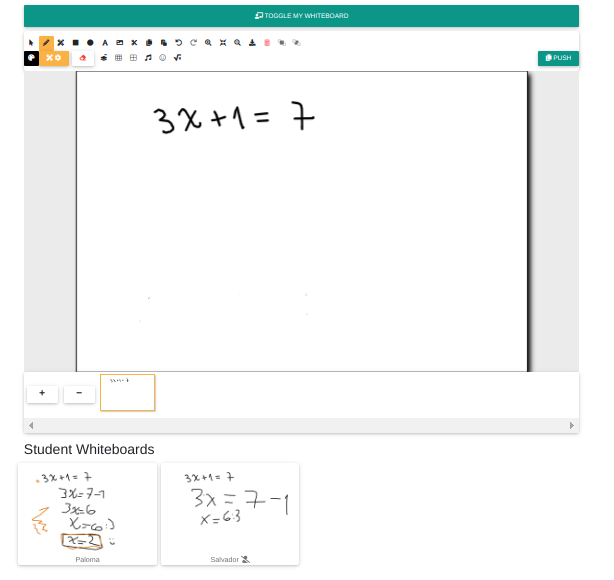 TOGGLE MY WHITEBOARD
A
PUSH
3x+1= 7
+ -
3x+1= 7
Student Whiteboards
3x+1= 7
3x=7-1
3x=6
x=6:3
x=2
Paloma
3x+1= 7
3x = 7-1
x=6:3
Salvador